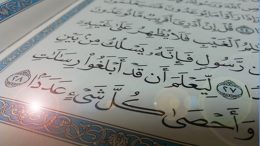 ٱلْغَيْبِ فَلَا يُظْهِرُ عَلَىٰ غَيْبِهِۦٓ
رَّسُولٍ فَإِنَّهُۥ يَسْلُكُ مِنۢ بَيْنِ
٢٧ لِّيَعْلَمَ أَن قَدْ أَبْلَغُوا۟ رِسَٰلَٰتِ
وَأَحْصَىٰ كُلَّ شَىْءٍ عَدَدًۢا ٢٨